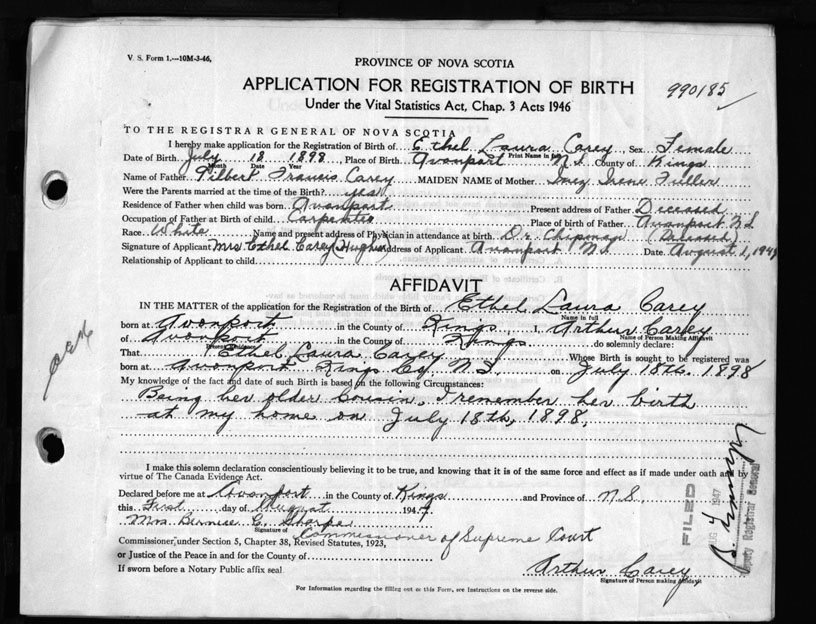 V. S. Form 1.—10M-3-46,
PROVINCE OF NOVA SCOTIA
APPLICATION FOR REGISTRATION OF BIRTH
990185
Under the Vital Statistics Act, Chap. 3 Acts 1946
TO THE REGISTRAR GENERAL OF NOVA SCOTIA
I hereby make application for the Registration of Birth of Ethel Laura Carey Sex Female
Print Name in full
Date of Birth July 18 1898 Place of Birth Avonport N.S. County of Kings
Month Day Year
Name of Father Francis Carey MAIDEN NAME of Mother Inez Irene Fuller
Were the Parents married at the time of the Birth? yes
Residence of Father when child was born Avonport Present address of Father Deceased
Occupation of Father at Birth of child Carpenter Place of birth of Father Avonport N.S.
Race White Name and present address of Physician in attendance at birth Dr. Chipman (Deceased)
Signature of Applicant Mrs Ethel Carey Hughes Address of Applicant Avonport N.S. Date August 1, 1947
Relationship of Applicant to child
AFFIDAVIT
IN THE MATTER of the application for the Registration of Birth of Ethel Laura Carey
Name in full
born at Avonport in the County of Kings, I, Arthur Carey
Name of Person Making Affidavit
of Avonport in the County of Kings do solemnly declare:
That Ethel Laura Carey Whose Birth is sought to be registered was
born at Avonport Kings Co. N.S. on July 18th. 1898
My knowledge of the fact and date of such Birth is based on the following Circumstances:
Being her older Cousin, I remember her birth
at my home on July 18th, 1898,
I make this solemn declaration conscientiously believing it to be true, and knowing that it is of the same force and effect as if made under oath and by
virtue of The Canada Evidence Act.
Declared before me at Avonport in the County of Kings and Province of N.S.
this First day of August 1947
Mrs. Bernise C. Sharpe
Signature of
Commissioner of Supreme Court
Commissioner, under Section 5, Chapter 38, Revised Statutes, 1923,
or Justice of the Peace in and for the County of
If sworn before a Notary Public affix seal
Arthur Carey,
Signature of Person making Affidavit
For Information regarding the filling out of this Form, see Instructions on the reverse side.
FILED
AUG 4 1947
Deputy Registrar General